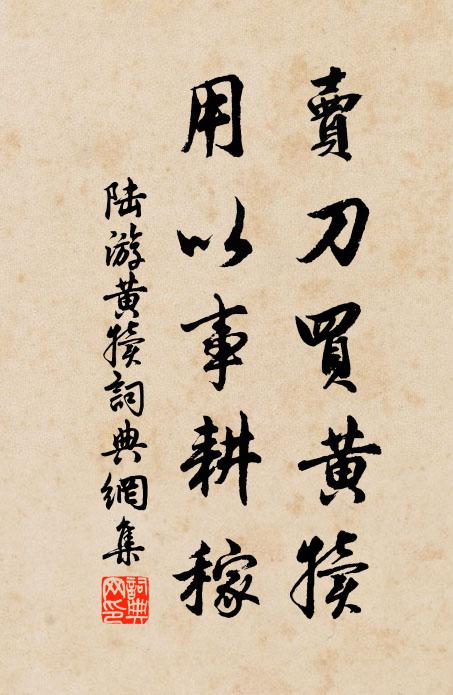 賣刀買黃犢
用以事耕稼
陸游黃犢詞典網集
詞典
网印